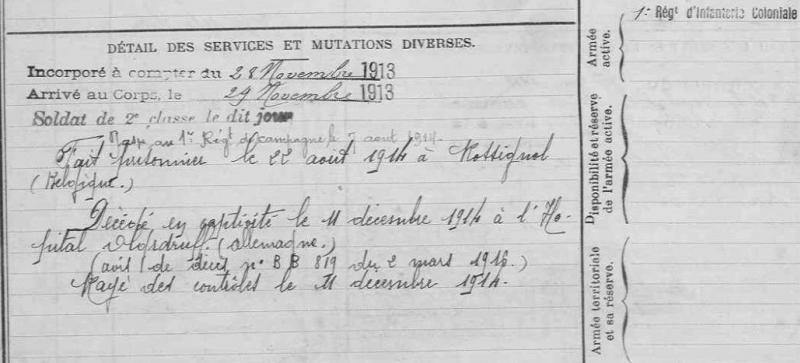 DÉTAIL DES SERVICES ET MUTATIONS DIVERSES.
Incorporé à compter du 28 Novembre 1913
Arrivé au Corps, le 29 Novembre 1913
Soldat de 2e classe le dit jour
Passé au 1er Régt de campagne le 7 aout 1914.
Fait prisonnier le 22 août 1914 à Rossignol
(Belgique.)
Décédé en captivité le 11 décembre 1914 à l'Ho-
pital d'Ohrdruff. (Allemagne.)
(avis de décès no B B 819 du 2 mars 1916.)
Rayé des contrôles le 11 décembre 1914.
1er Régt d'Infanterie Coloniale
Armée
active.
Disponibilité et réserve
de l'armée active.
Armée territoriale
et sa réserve.